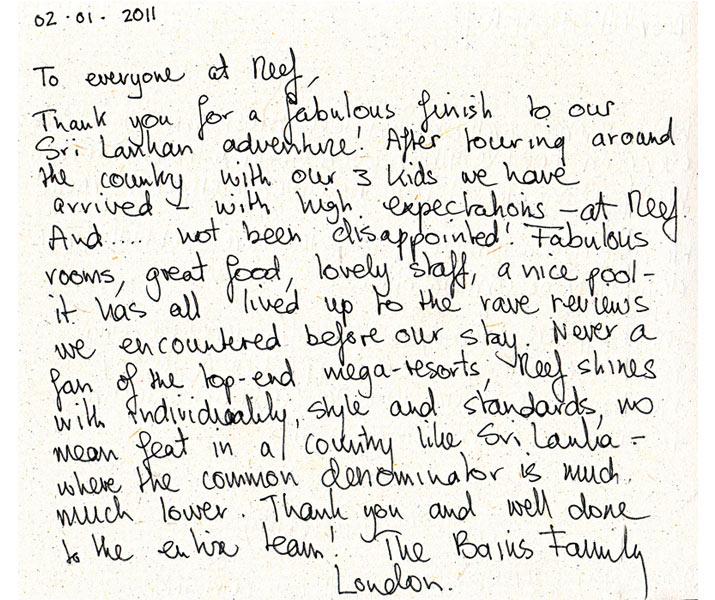 02·01·2011
To everyone at Reef,
Thank you for a fabulous finish to our
Sri Lankan adventure! After touring around
the country with our 3 kids we have
arrived – with high expectations – at Reef.
And.... not been disappointed! Fabulous
rooms, great food, lovely staff, a nice pool –
it has all lived up to the rave reviews
we encountered before our stay. Never a
fan of the top-end mega-resorts, Reef shines
with individuality, style and standards, no
mean feat in a country like Sri Lanka –
where the common denominator is much,
much lower. Thank you and well done
to the entire team! The Bains Family
London.